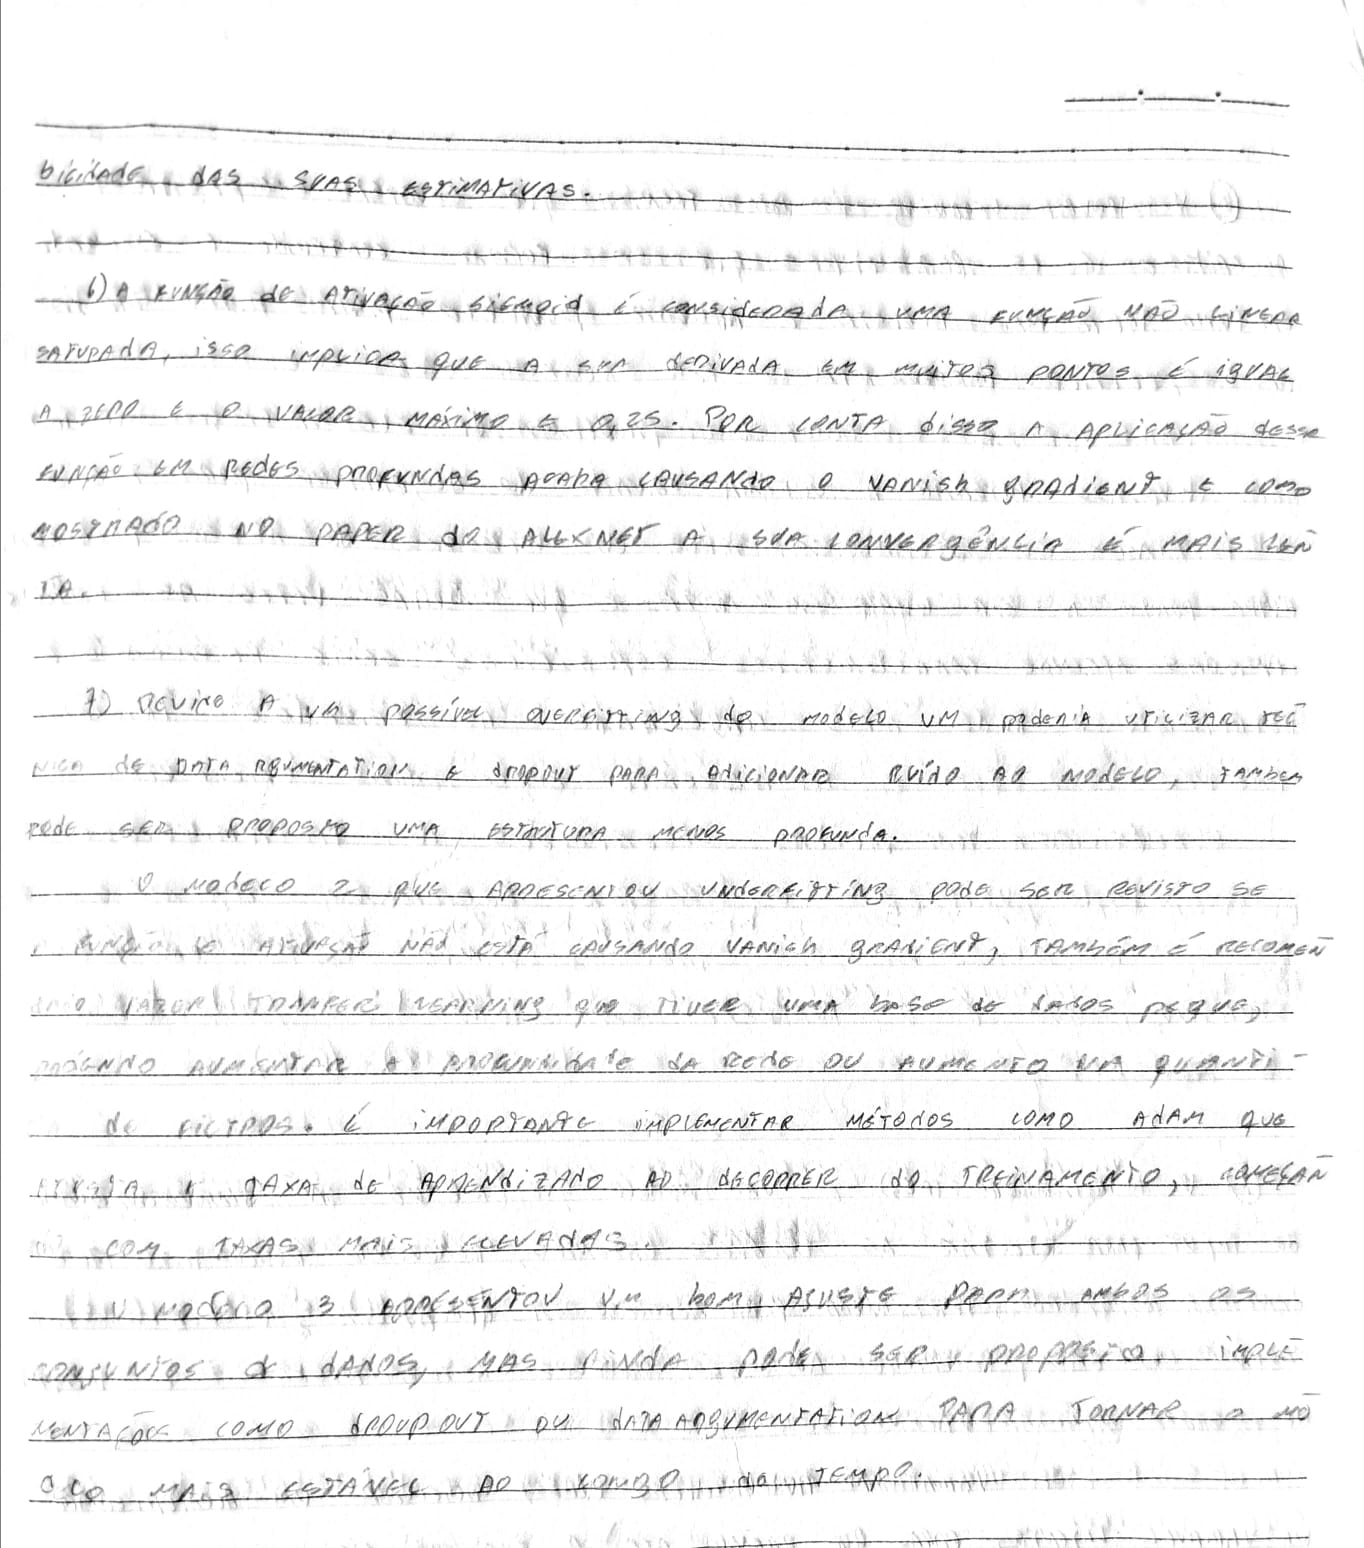 bilidade das suas ESTIMATIVAS.
6) A FUNÇÃO de ATIVAÇÃO SIGMOID É CONSIDERADA UMA FUNÇÃO NÃO LINEAR
SATURADA, isso implica que A sua DERIVADA EM MUITOS PONTOS É iGUAL
A ZERO E O VALOR MÁXIMO É 0,25. POR CONTA disso A APLICAÇÃO dessa
FUNÇÃO EM REDES PROFUNDAS ACABA CAUSANDO O VANISH gRADIENT E COMO
MOSTRADO NO PAPER do ALEXNET A SUA CONVERGÊNCIA É MAIS LEN
TA.
7) DEVIDO A UM possível OVERFITTING do MODELO UM poderia UTILIZAR TÉC
NICA de DATA ARGUMENTATION E dROPOUT PARA AdiCIONAR RUÍDO AO MODELO, TAMBEM
PODE SER PROPOSTO UMA ESTRUTURA MENOS PROFUNDA.
O MODELO 2 QUE APRESENTOU UNDERFITTING pode SER REVISTO SE
FUNÇÃO de ATIVAÇÃO NÃO ESTÁ CAUSANDO VANISH gRADIENT, TAMBÉM É RECOMEN
FAZER TRANFER LEARNING TIVER UMA BASE de dADOS
PODENDO AUMENTAR A PROFUNDIDADE DA REDE OU AUMENTO NA QUANTI-
de FILTROS. É IMPORTANTE IMPLEMENTAR MÉTODOS COMO ADAM QUE
A TAXA de APRENDIZADO AO DECORRER do TREINAMENTO, COMEÇAN
COM TAXAS MAIS ELEVADAS.
O Modelo 3 APRESENTOU UM bOM AJUSTE PARA AMBOS OS
CONJUNTOS de DADOS, MAS AINDA pode SER PROPOSTO IMPLE
MENTAÇÕES COMO dROUPOUT OU dATA ARGUMENTATION PARA TORNAR O MO
dELO MAIS ESTÁVEL AO LONGO do TEMPO.